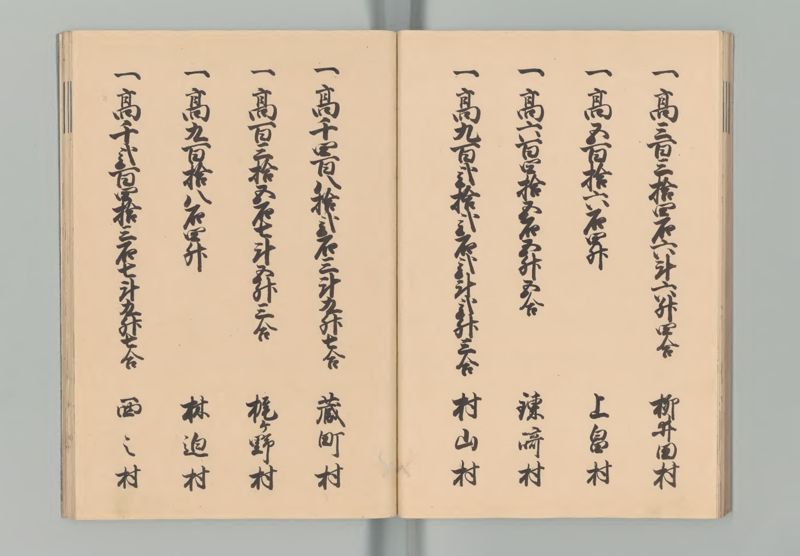 一高三百三拾四石六斗六升四合 柳井田村
一高五百拾六石四升 上畠村
一高六百四拾五石五升五合 陳﨑村
一高九百弐拾弐石弐斗弐升三合 村山村
一高千四百八拾弐石三斗九升七合 蔵町村
一高百三拾五石七斗五升三合 梶ヶ野村
一高九百拾八石四升 林迫村
一高千弐百四拾三石七斗九升七合 西之村